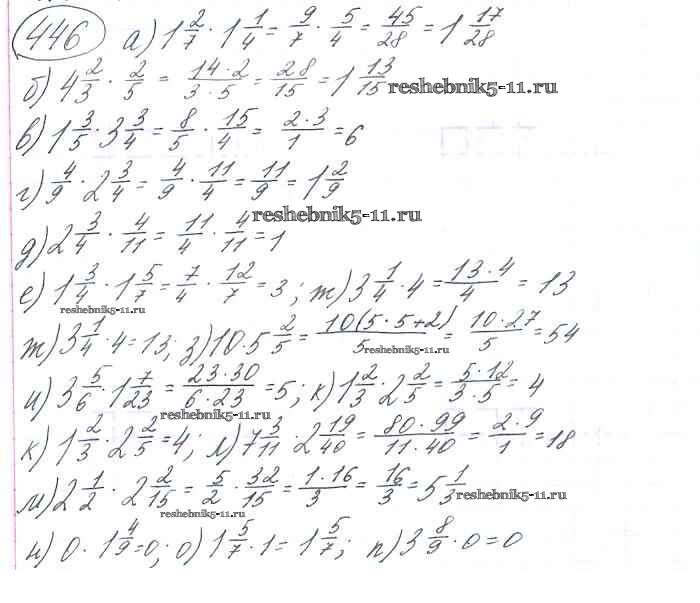 446 а) 1 2/7 · 1 1/4 = 9/7 · 5/4 = 45/28 = 1 17/28
б) 4 2/3 · 2/5 = 14·2/3·5 = 28/15 = 1 13/15 reshebnik5-11.ru
в) 1 3/5 · 3 3/4 = 8/5 · 15/4 = 2·3/1 = 6
г) 4/9 · 2 3/4 = 4/9 · 11/4 = 11/9 = 1 2/9
reshebnik5-11.ru
д) 2 3/4 · 4/11 = 11/4 · 4/11 = 1
е) 1 3/4 · 1 5/7 = 7/4 · 12/7 = 3; ж) 3 1/4 · 4 = 13·4/4 = 13
reshebnik5-11.ru
ж) 3 1/4 · 4 = 13; з) 10 · 5 2/5 = 10(5·5+2)/5 = 10·27/5 = 54
reshebnik5-11.ru
и) 3 5/6 · 1 7/23 = 23·30/6·23 = 5; к) 1 2/3 · 2 2/5 = 5·12/3·5 = 4
reshebnik5-11.ru
к) 1 2/3 · 2 2/5 = 4; л) 7 3/11 · 2 19/40 = 80·99/11·40 = 2·9/1 = 18
м) 2 1/2 · 2 2/15 = 5/2 · 32/15 = 1·16/3 = 16/3 = 5 1/3
reshebnik5-11.ru
reshebnik5-11.ru
н) 0 · 1 4/9 = 0; о) 1 5/7 · 1 = 1 5/7; п) 3 8/9 · 0 = 0